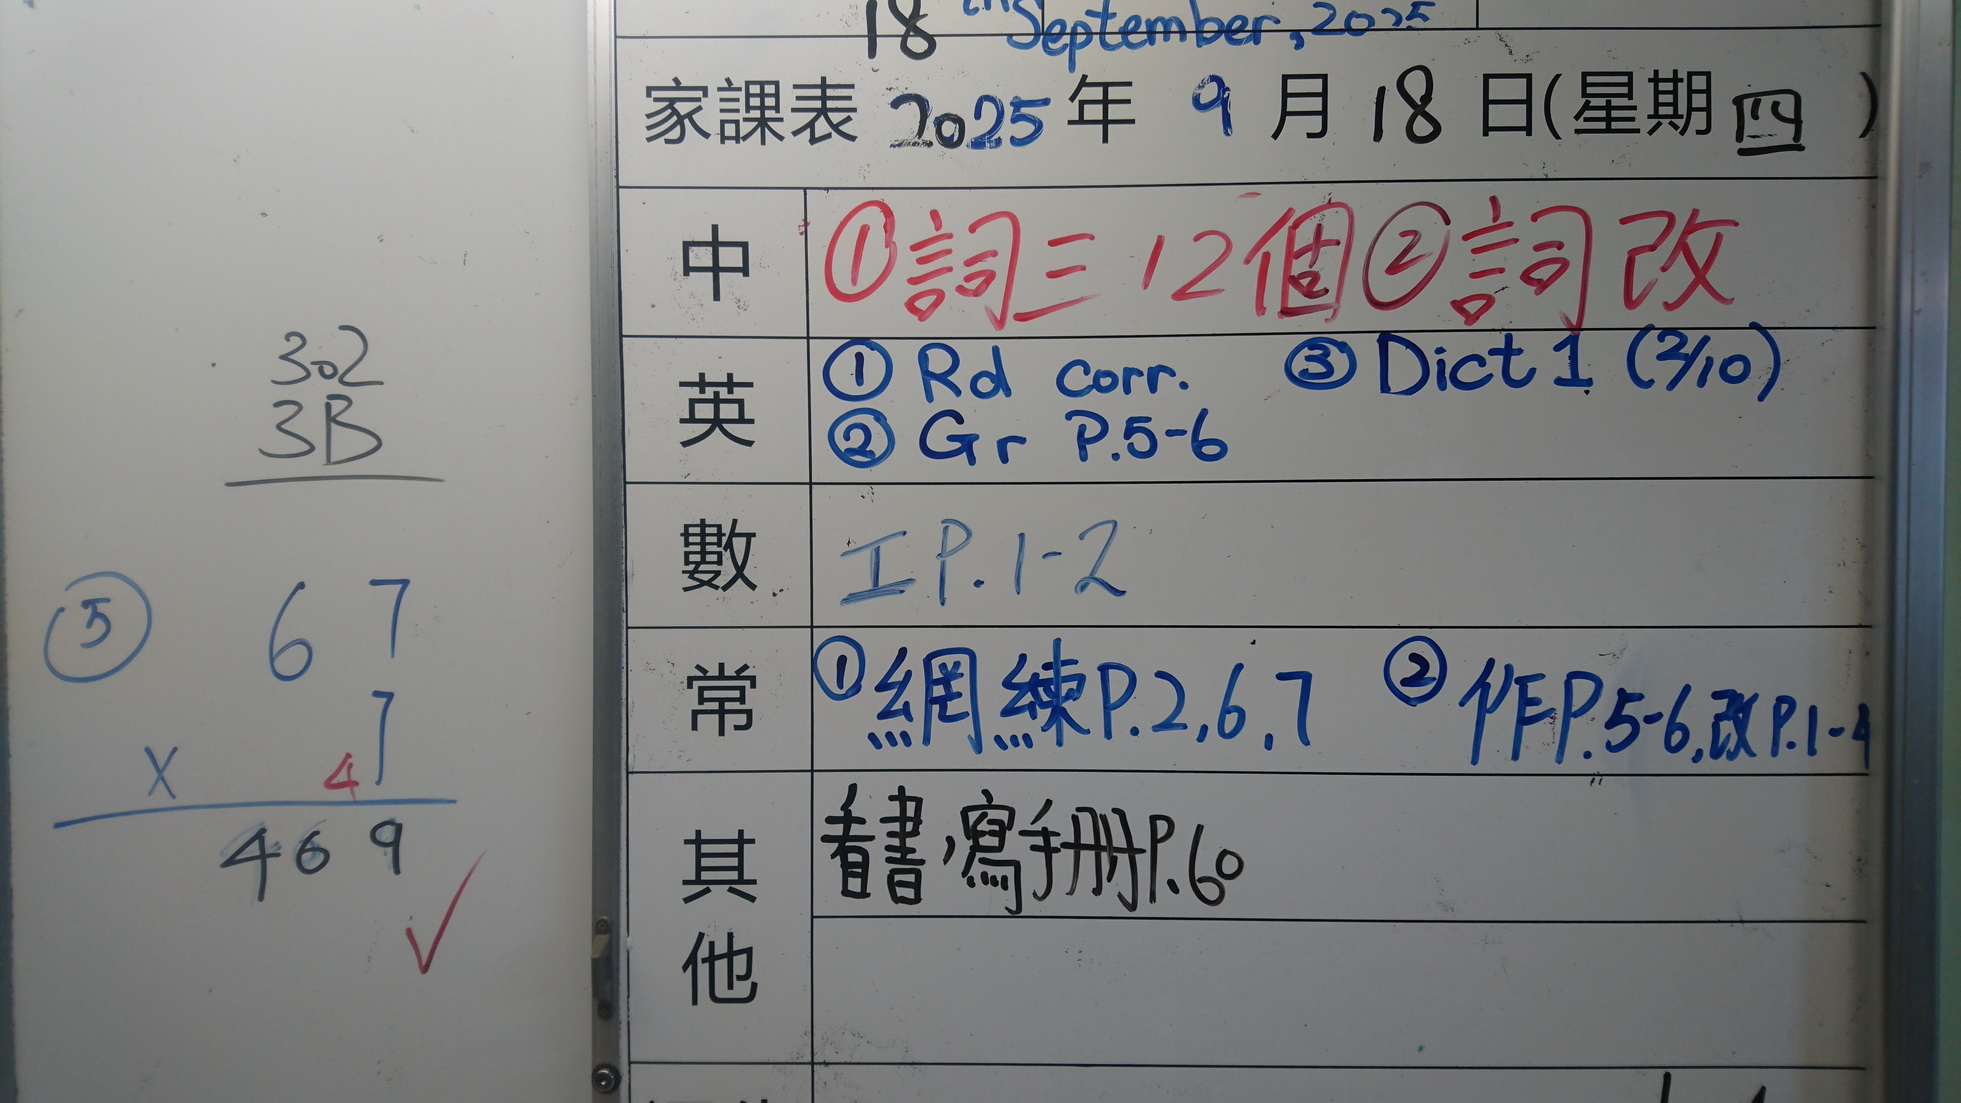 302
3B
⑤ 67
× 47
469
18th September, 2025
家課表 2025年 9月18日(星期四)
中 ①詞三12個②詞改
英 ① Rd corr. ③ Dict 1 (2/10)
② Gr P.5-6
數 工P.1-2
常 ①網練P.2,6,7 ②作P.5-6,改P.1-4
其他 看書,寫手冊P.60